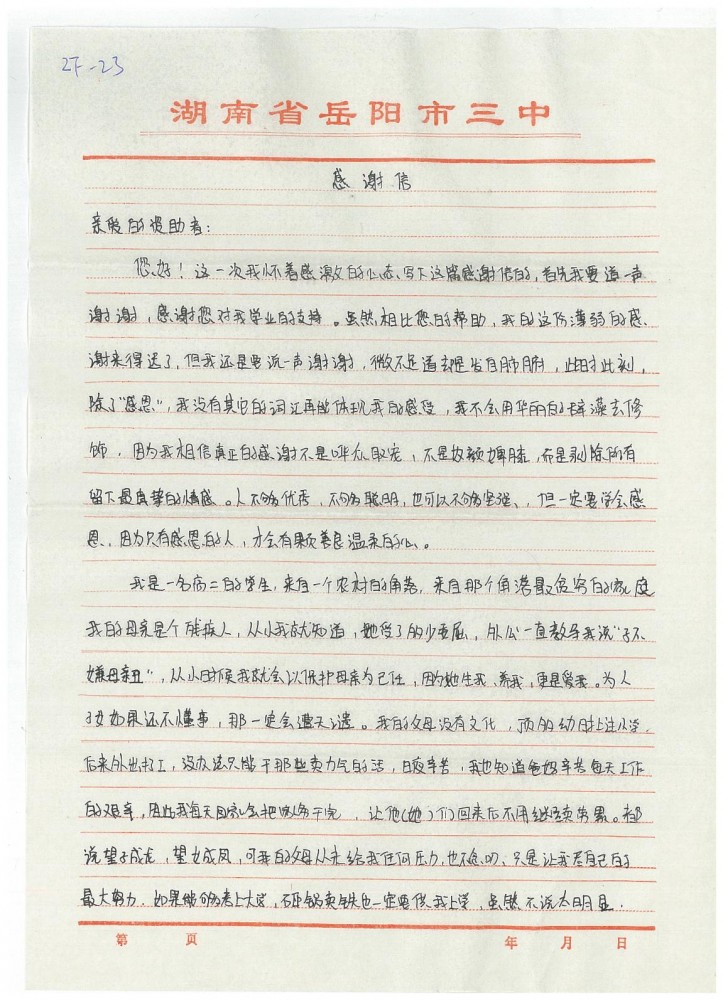 27-23
湖南省岳阳市三中
感谢信
亲爱的资助者:
您好!这一次我怀着感激的心态、写下这篇感谢信的,首先我要道一声
谢谢,感谢您对我学业的支持。虽然相比您的帮助,我的这份薄弱的感
谢来得迟了,但我还是要说一声谢谢,微不足道却是发自肺腑,此时此刻,
除了"感恩",我没有其它的词汇再能体现我的感受,我不会用华丽的辞藻去修
饰,因为我相信真正的感谢不是哗众取宠,不是奴颜婢膝,而是剥除所有
留下最真挚的情感。人不够优秀,不够聪明,也可以不够坚强、,但一定要学会感
恩,因为只有感恩的人,才会有颗善良温柔的心。
我是一名高二的学生,来自一个农村的角落,来自那个角落最贫穷的家庭
我的母亲是个残疾人,从小我就知道,她受了的少委屈,外公一直教导我说"子不
嫌母亲丑",从小时候我就会以保护母亲为己任,因为她生我、养我,更是爱我。为人
子女如果还不懂事,那一定会遭天谴。我的父母没有文化,顶的幼时上过小学,
后来外出打工,没办法只能干那些卖力气的活,日夜辛苦,我也知道爸妈辛苦每天工作
的艰辛,因此我每天回家会把家务干完,让他(她)们回来后不用继续劳累。都
说望子成龙,望女成凤,可我的父母从未给我任何压力,也不急切、只是让我尽自己的
最大努力,如果能够考上大学,砸锅卖铁也一定要供我上学,虽然不说太明显,
第 页 年 月 日